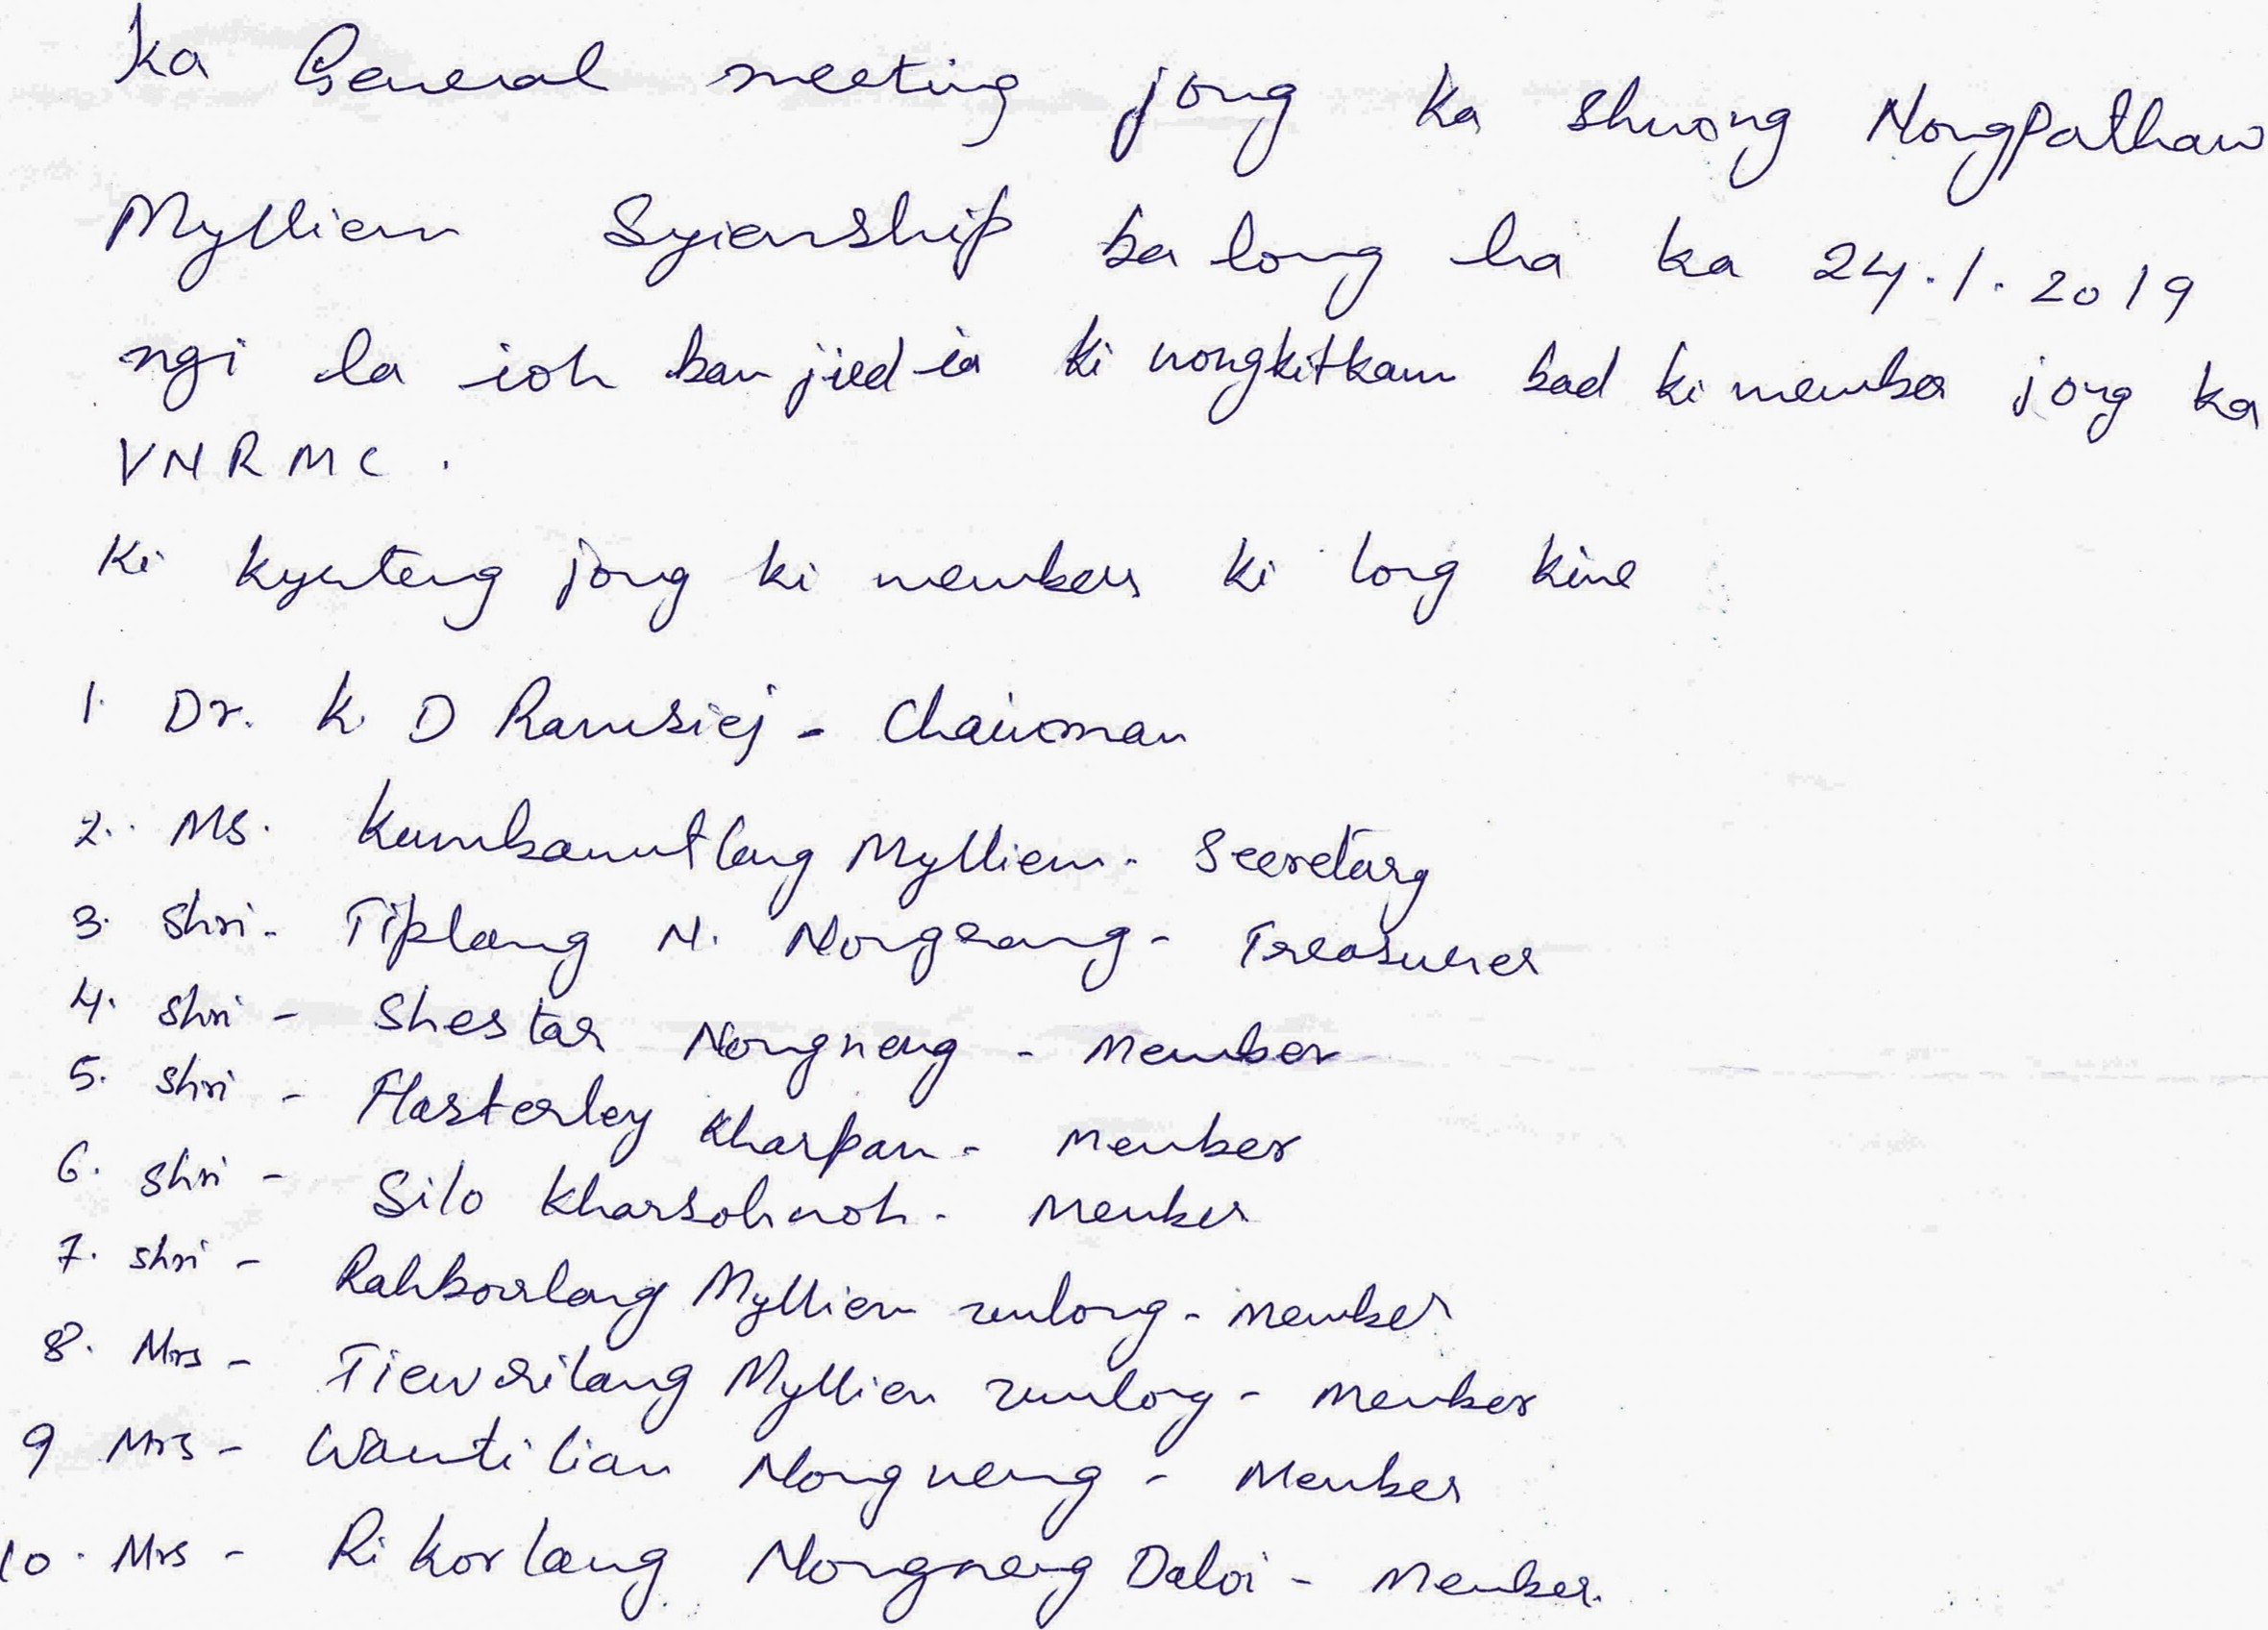 Ka General meeting jong ka Shnong Nongpathaw
Mylliem Syiemship ba long ha ka 24.1.2019
ngi la ioh ban jied ia ki nongkitkam bad ki member jong ka
VNRMC.
Ki kyrteng jong ki members ki long kine
1. Dr. K. D Ramsiej - Chairman
2. Ms. Kumbamutlang Mylliem - Secretary
3. Shri - Tiplang N. Nongrang - Treasurer
4. Shri - Shestar Nongneng - Member
5. Shri - Hasterley Kharpan - Member
6. Shri - Silo Kharsohnoh - Member
7. Shri - Rahborlang Mylliem umlong - Member
8. Mrs - Tiewrilang Mylliem umlong - Member
9 Mrs - Wantilian Nongneng - Member
10. Mrs - Rikorlang Nongneng Daloi - Member.